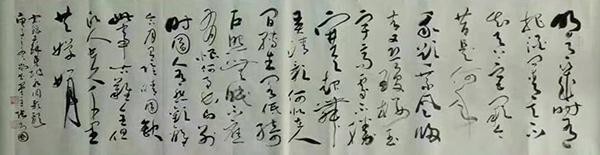 明月幾時有
把酒問青天不
知天上宮闕今
夕是何年
我欲乘風歸
去又恐瓊樓玉
宇高處不勝
寒起舞
弄清影何似在人
間轉朱閣低綺
戶照無眠不應
有恨何事長向別
時圓人有悲歡離
合月有陰晴圓缺
此事古難全但
願人長久千里
共嬋娟
蘇東坡水調歌頭
庚子